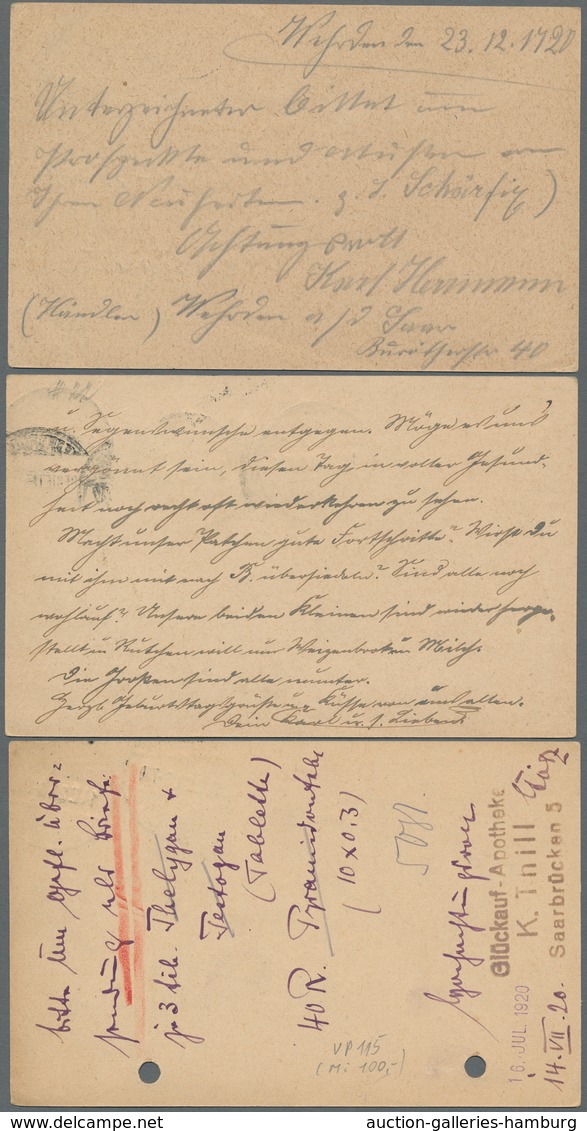 Wehrden den 23.12.1920
Unterzeichneter bittet um
Prospekte und Muster von
Ihren Neuheiten. z. B. Schärfix)
Achtungsvoll
Karl Hermann
(Händler) Wehrden a/d Saar
40
u. Segenswünsche entgegen. Möge es uns
vergönnt sein, diesen Tag in voller Gesund-
heit noch recht oft wiederkehren zu sehen.
Macht unser Patchen gute Fortschritte? Wirst Du
mit ihm mit nach B. übersiedeln? Sind alle noch
wohlauf? Unsere beiden Kleinen sind wieder herge-
stellt u. will nur Weizenbrot u. Milch.
Die Großen sind alle munter.
Herzl. Geburtstagsgrüße u. Küsse von uns allen.
Dein Karl u. s. Lieben.
bitte um gefl. Über=
sendung als Briefe
je 3 Thelygan +
Testogan
(Tablette)
40 R.
(10 x 0,3)
50
Hochachtungsvoll
Glückauf-Apotheke
K. Thill
Saarbrücken 5
16. JUL 1920
14. VII. 20.
VP 115
(Mi 100,-)
www.delcampe.net
auction-galleries-hamburg